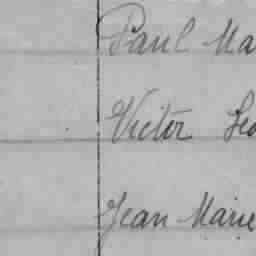 Paul Ma
Victor Leo
Jean Marie